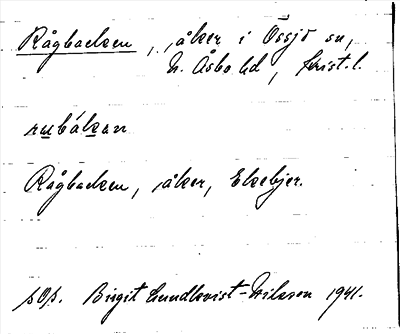 Rågbacken, åker i Össjö sn,
N. Åsbo hd, Krist. l.
Rågbacken, åker, Ekebjer.
Birgit Lundkvist-Nilsson 1941.